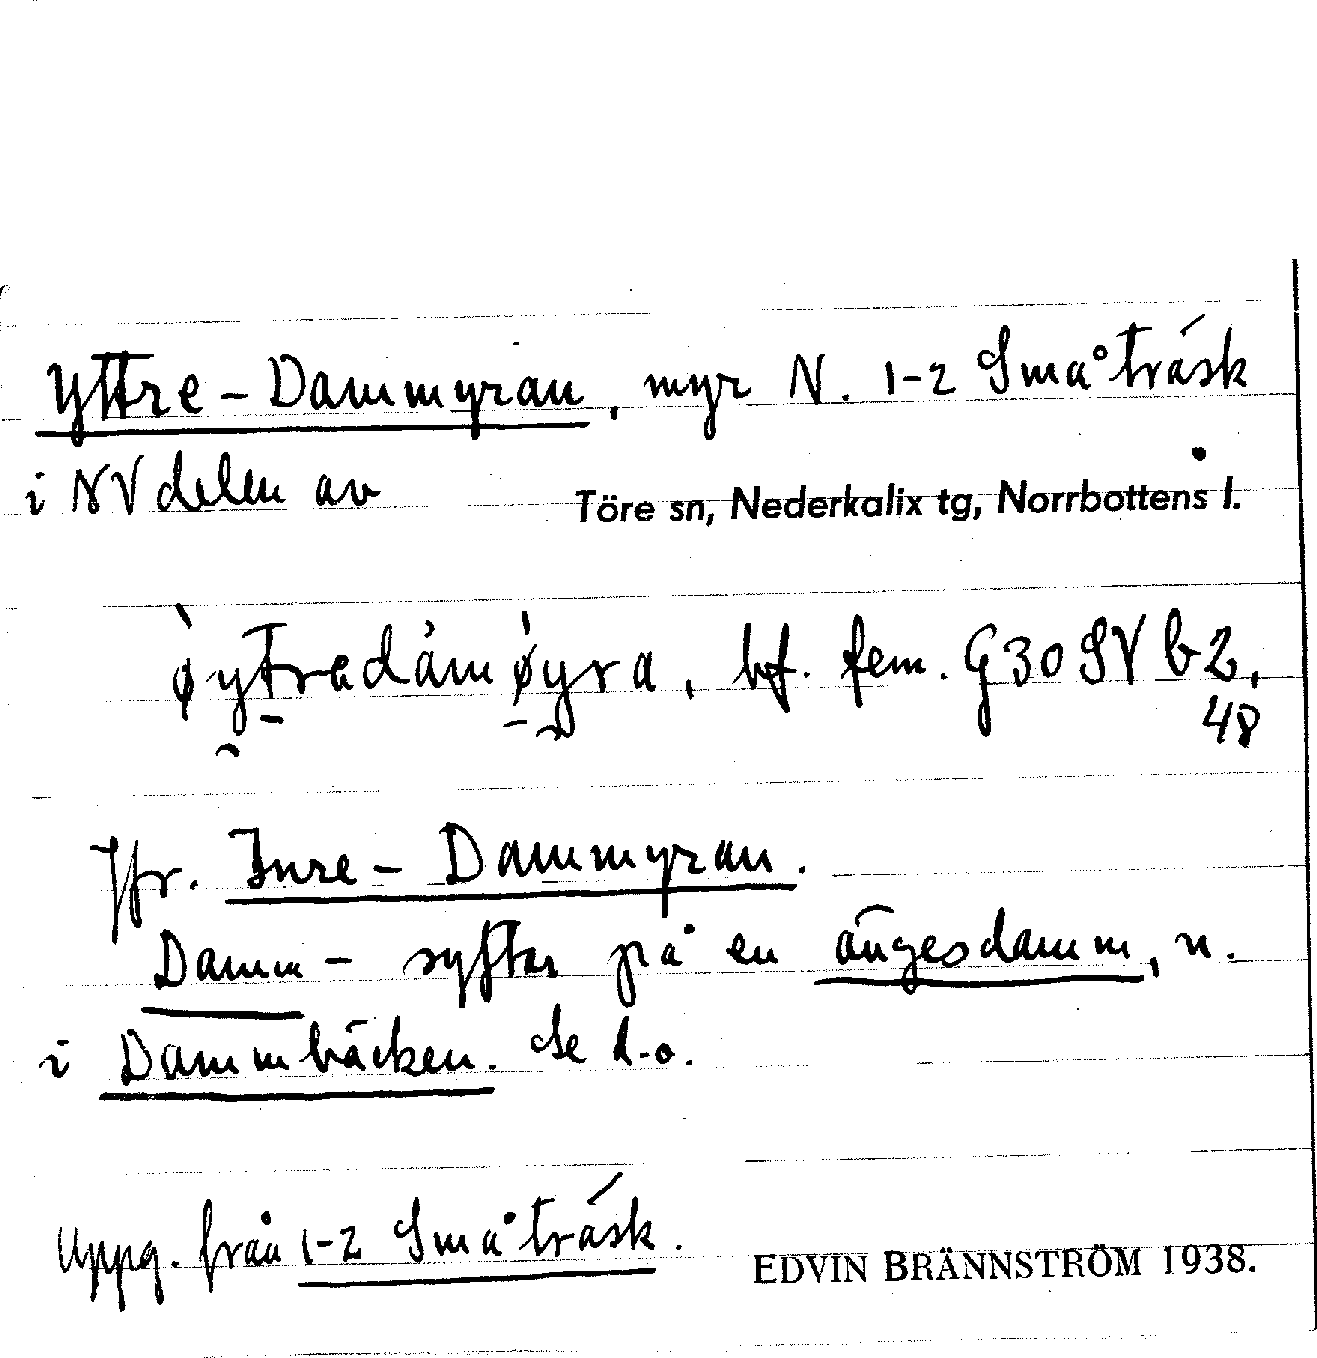 Yttre-Dammyran, myr N. 1-2 Småträsk
i NV delen av Töre sn, Nederkalix tg, Norrbottens l.
bf. fem. G30SV b2,
48
Jfr. Inre-Dammyran.
Damm- syftar på en ängesdamm, n.
i Dammbäcken. Se d.o.
Uppg. från 1-2 Småträsk.
EDVIN BRÄNNSTRÖM 1938.